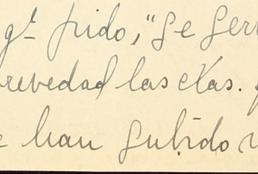 pido, "se ser
revedad las ctas.
e han subido